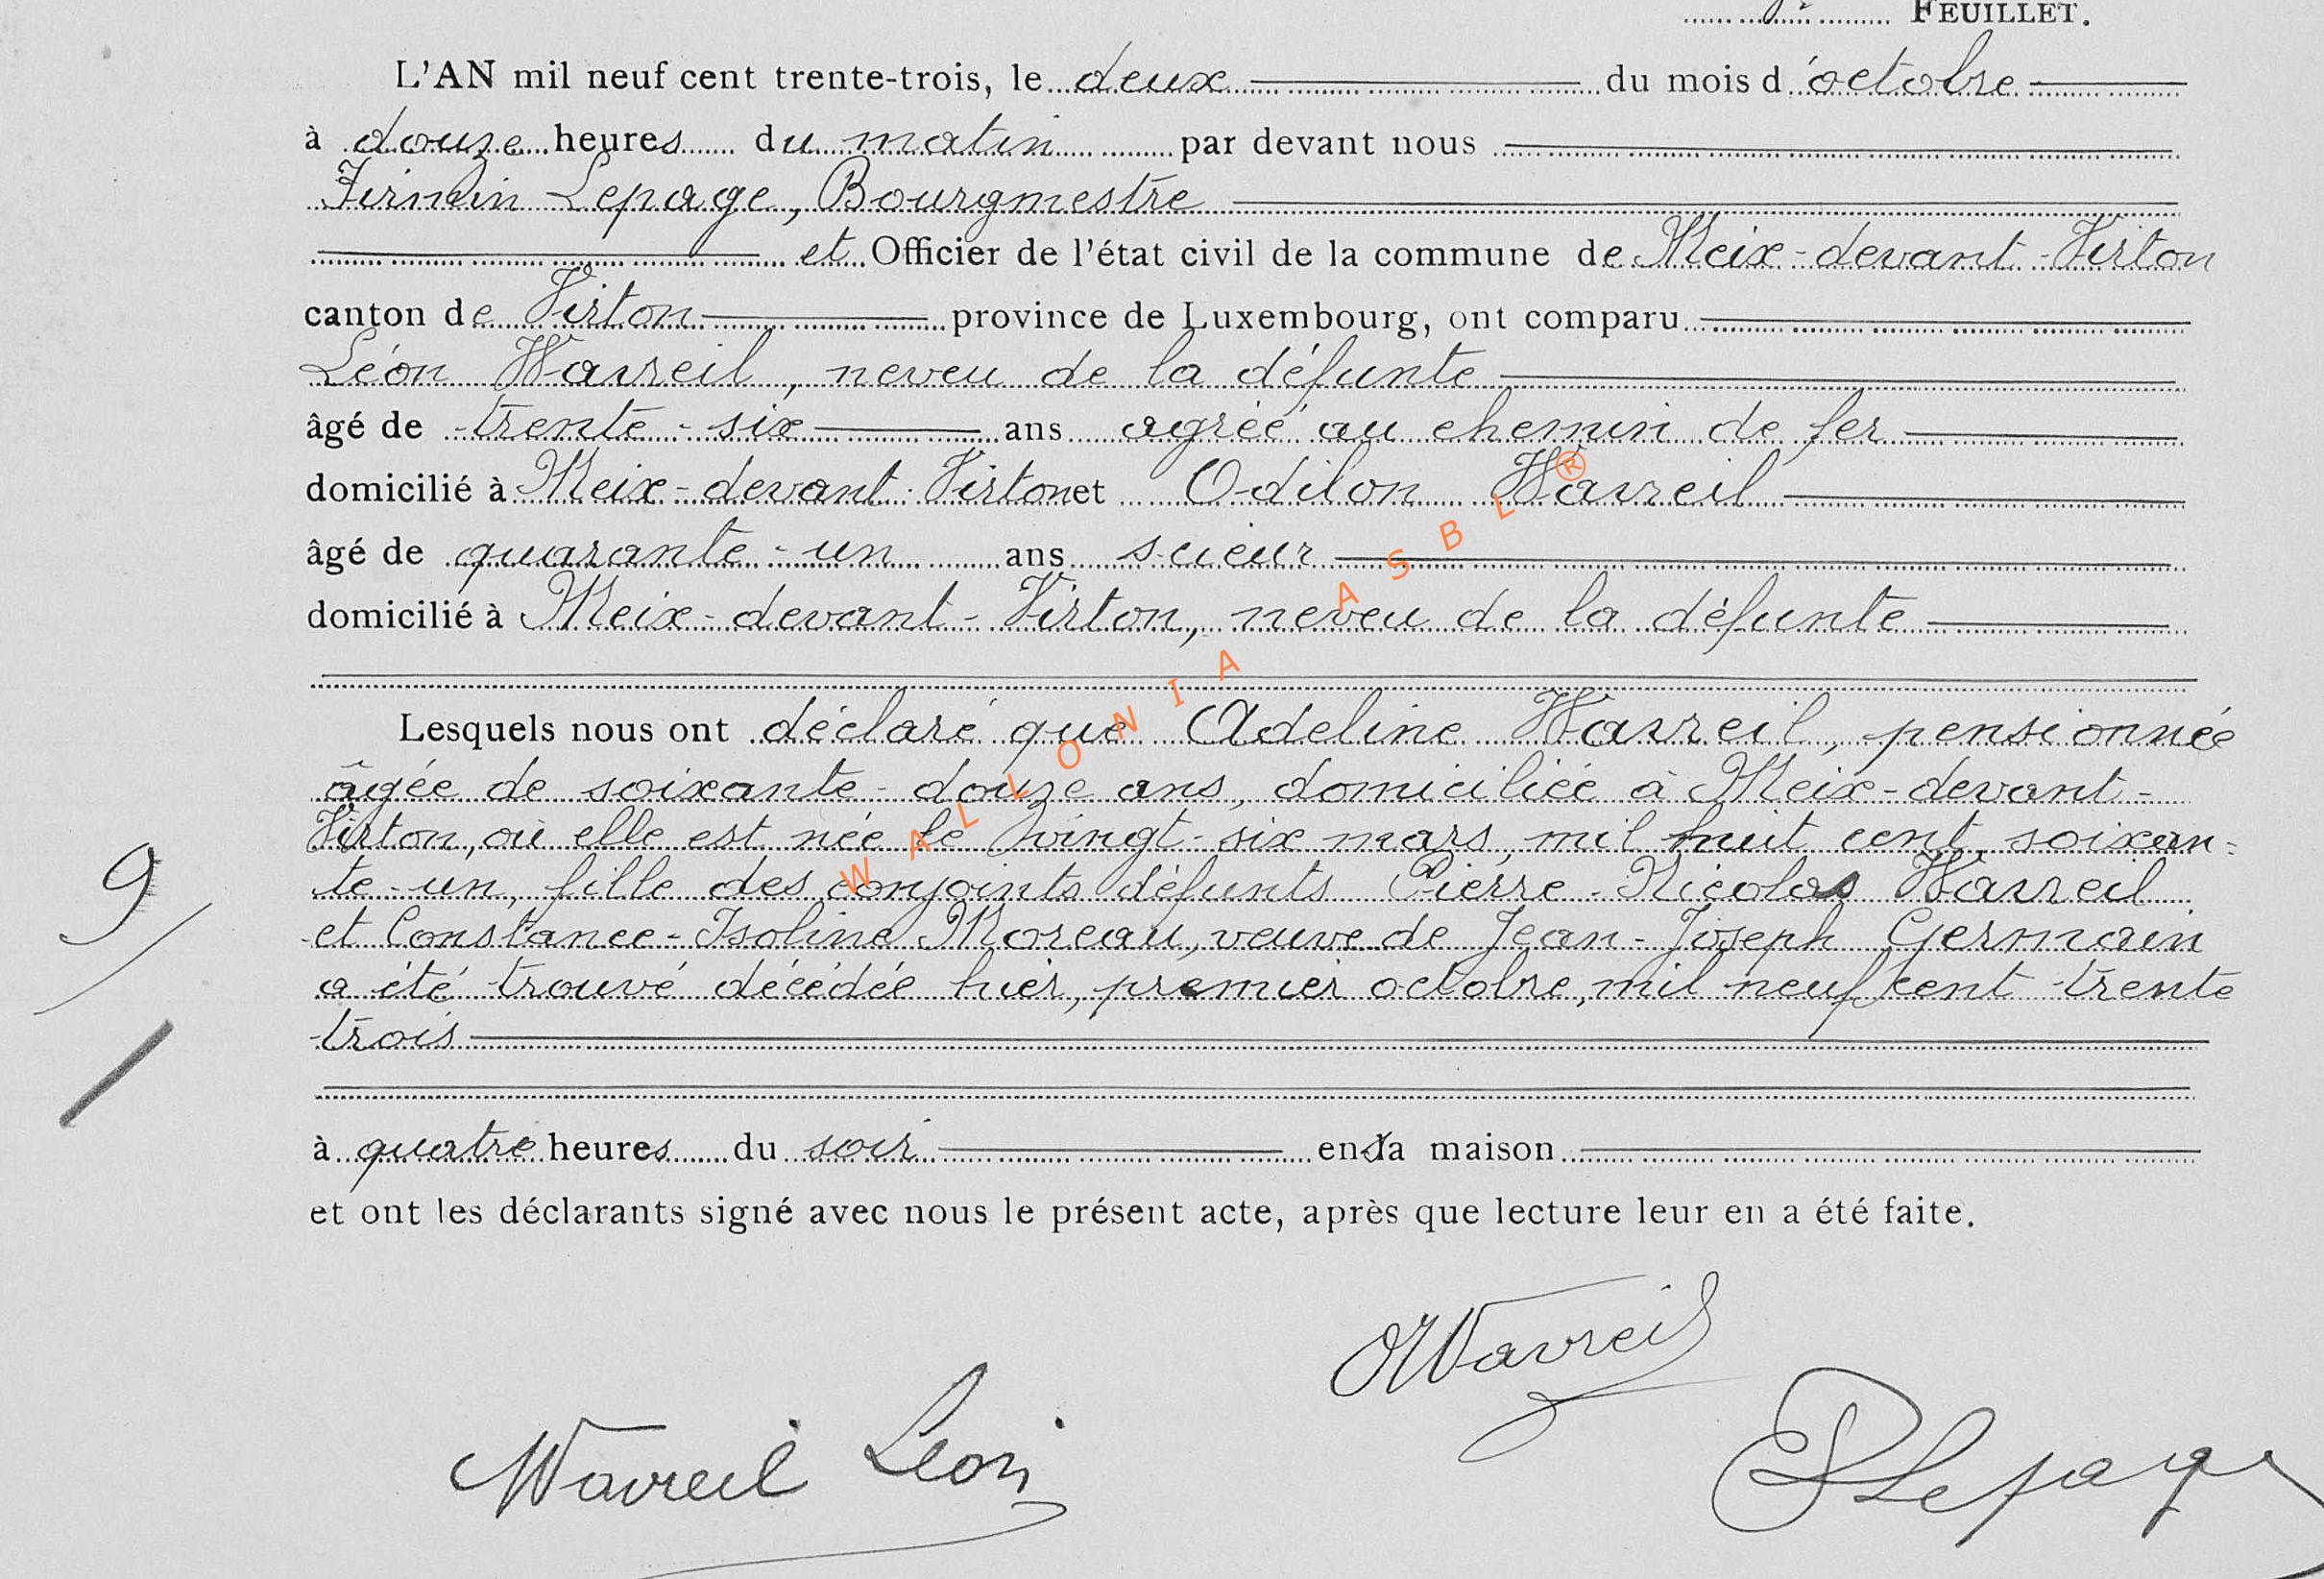 FEUILLET.
L'AN mil neuf cent trente-trois, le deux du mois d'octobre
à douze heures du matin par devant nous
Firmin Lepage, Bourgmestre
et Officier de l'état civil de la commune de Meix-devant-Virton
canton de Virton province de Luxembourg, ont comparu
Léon Wavreil, neveu de la défunte
âgé de trente-six ans agréé au chemin de fer
domicilié à Meix-devant-Virton et Odilon Wavreil
âgé de quarante-un ans scieur
domicilié à Meix-devant-Virton, neveu de la défunte
Lesquels nous ont déclaré que Adeline Wavreil, pensionnée
âgée de soixante-douze ans, domiciliée à Meix-devant-
Virton, où elle est née le vingt-six mars, mil huit cent soixan-
te-un, fille des conjoints défunts Pierre-Nicolas Wavreil
et Constance-Isoline Moreau, veuve de Jean-Joseph Germain
a été trouvé décédée hier, premier octobre, mil neuf cent trente
trois
9
à quatre heures du soir en sa maison
et ont les déclarants signé avec nous le présent acte, après que lecture leur en a été faite.
OWavreil
Wavreil Léon
Lepage
WALLONIA ASBL ®